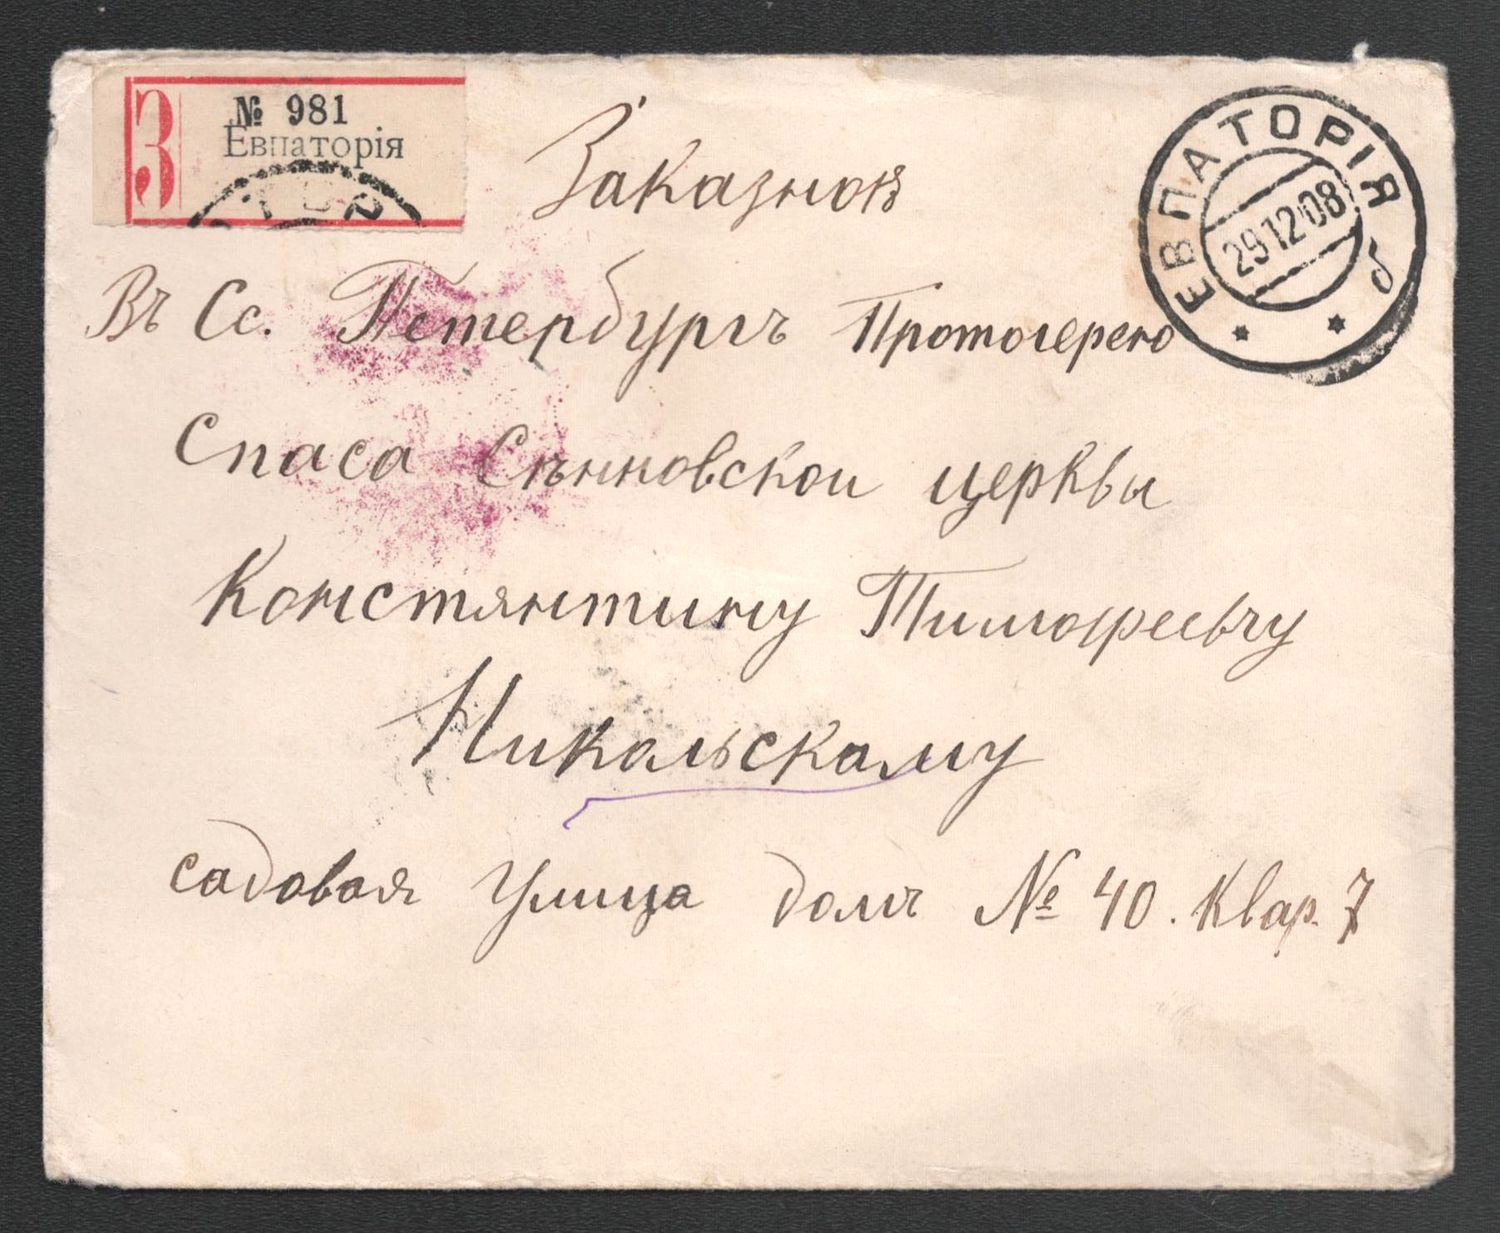 З
№ 981
Евпаторія
ЕВПАТОРІЯ
29 12 08
б
Заказное
Въ Сс. Петербургъ Протоіерею
Спаса Сѣнновской церквы
Констянтину Тимофеевчу
Никольскому
садовая улица домъ № 40. Квар. 7